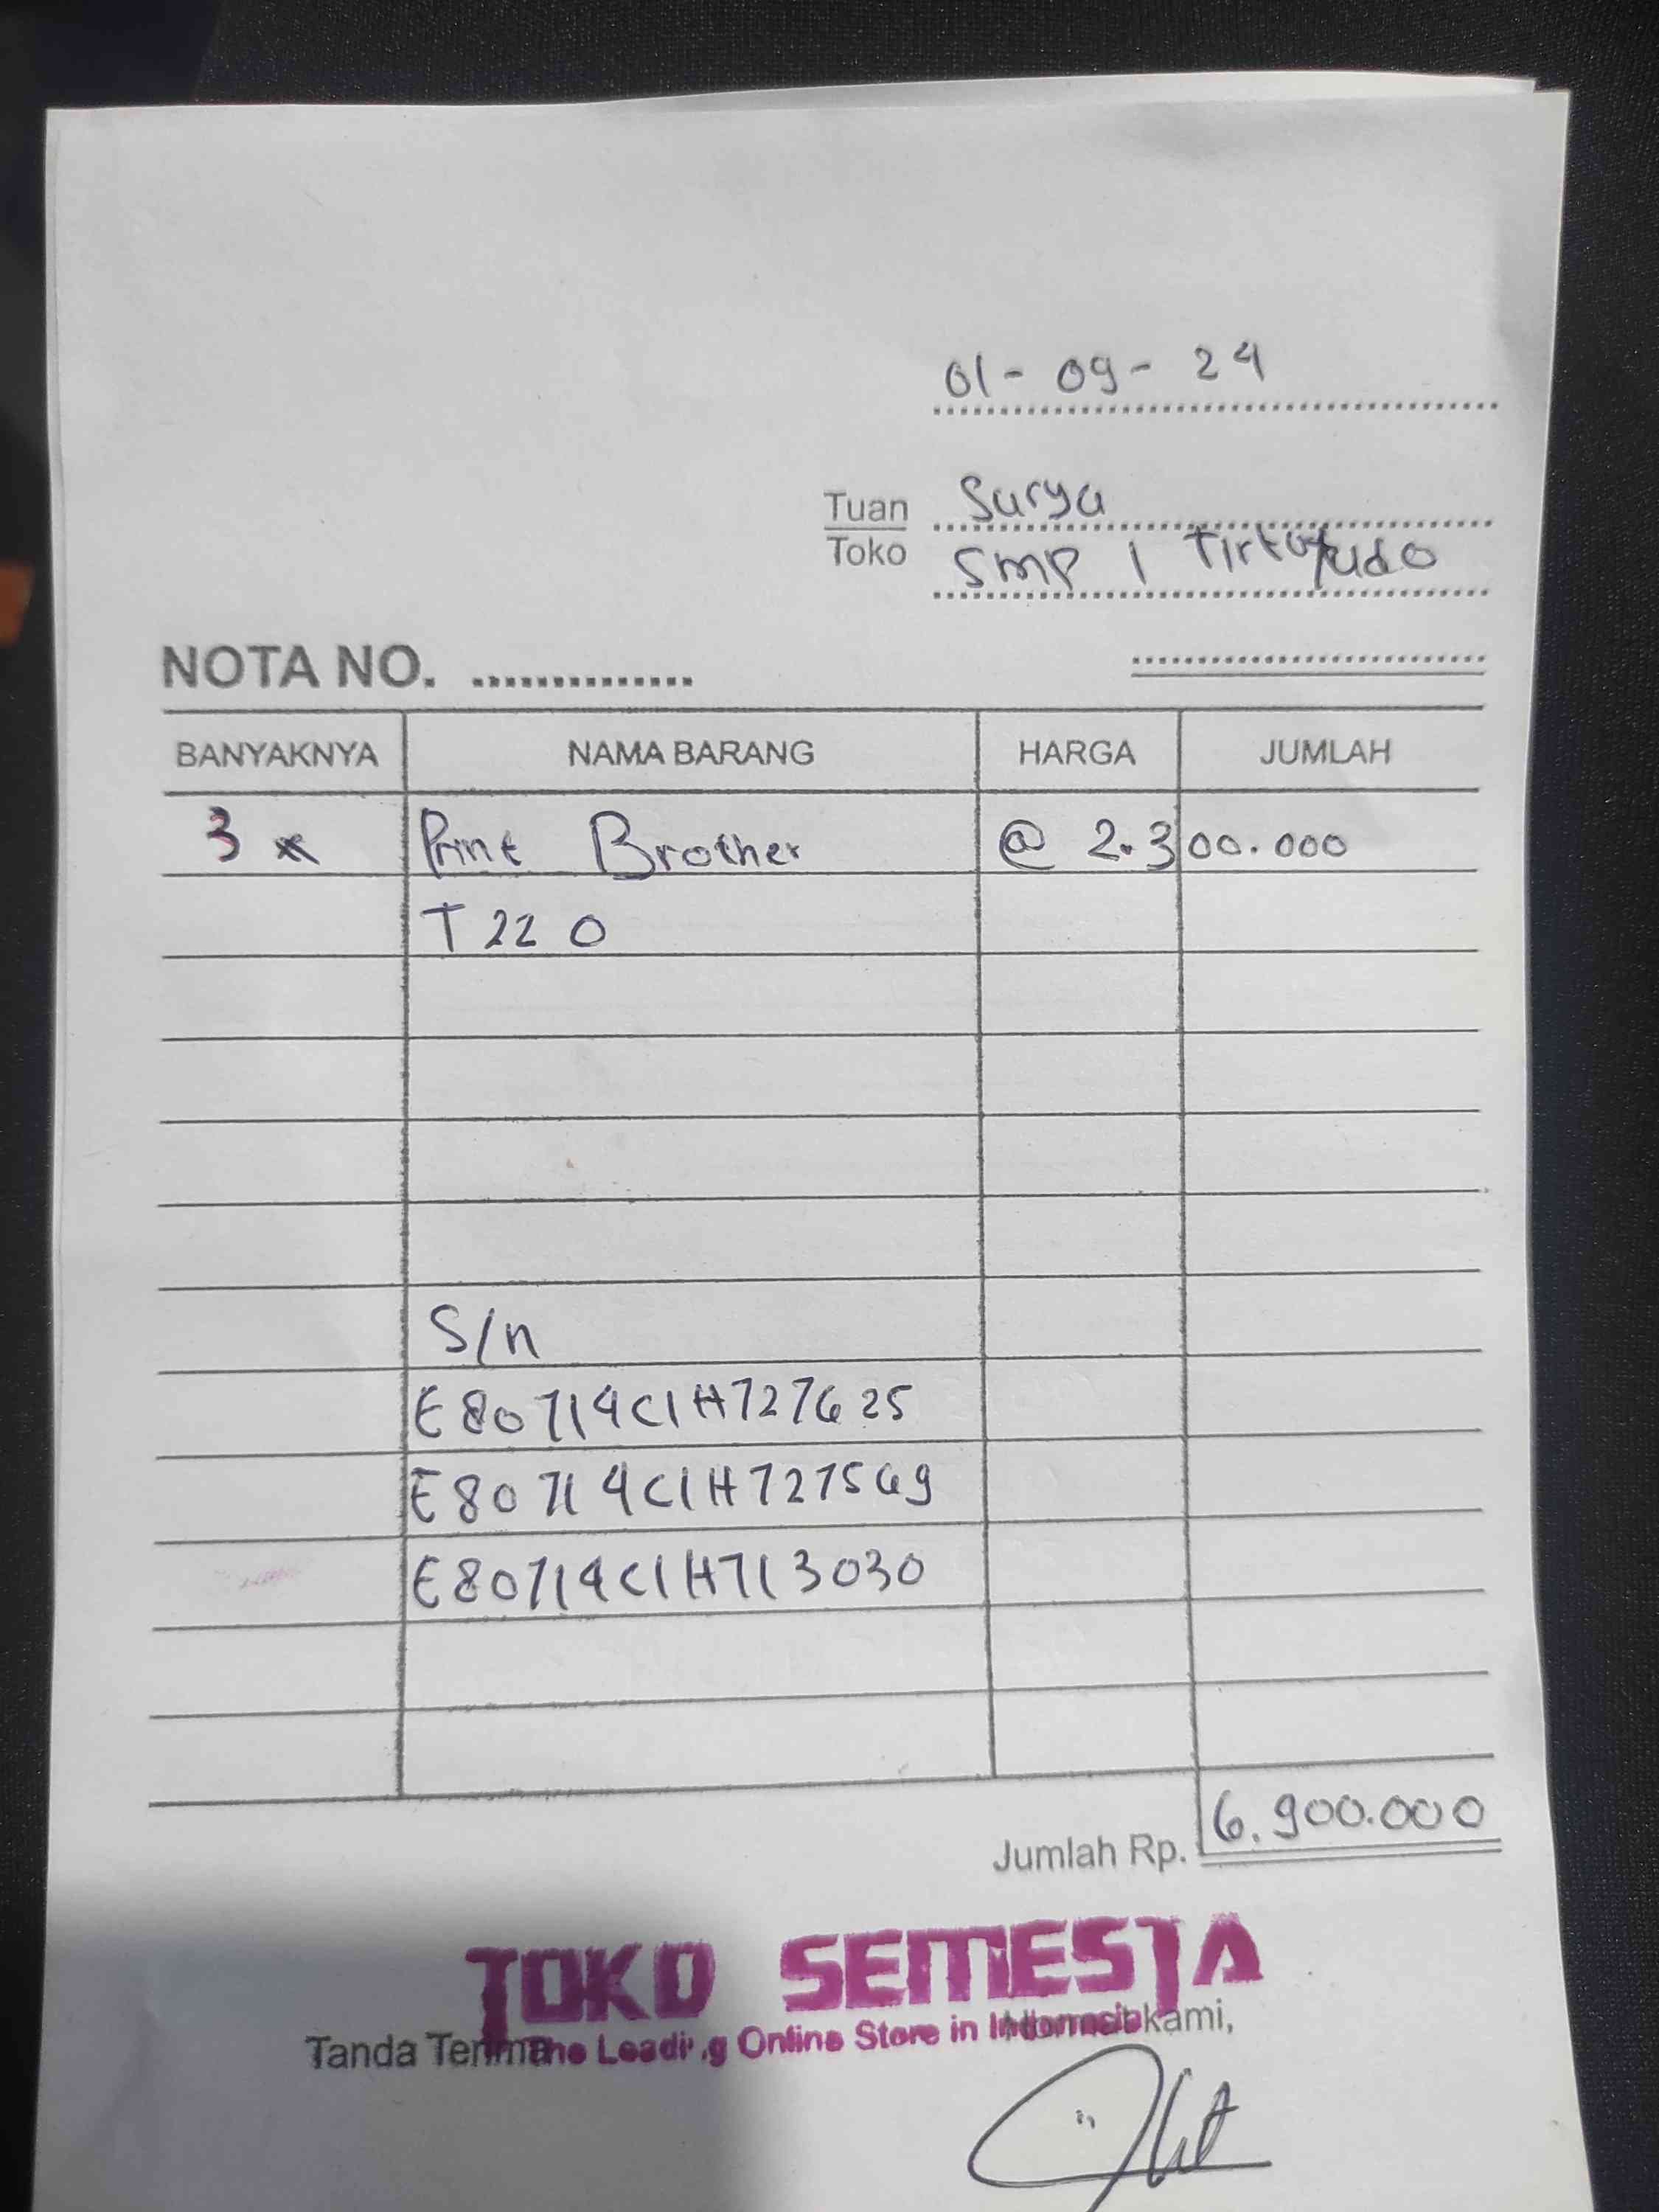 01 - 09 - 24
Tuan Surya
Toko SMP 1 Tirtoyudo
NOTA NO. ...............
BANYAKNYA NAMA BARANG HARGA JUMLAH
3 x Print Brother @ 2.300.000
T 220
S/n
E80714C1H727625
E80714C1H727569
E80714C1H713030
Jumlah Rp. 6.900.000
TOKO SEMESTA
The Leading Online Store in Indonesia
Tanda Terima Hormat kami,